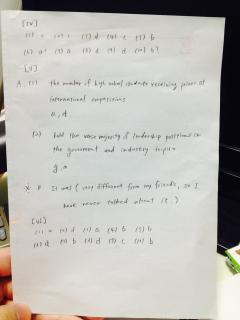 [IV]
(1) c (2) c (3) d (4) c (5) b
(6) a? (7) a (8) d (9) d (10) b?
[V]
A. (1) the number of high school students receiving prizes at
international competitions
a, d
(2) hold the vast majority of leadership positions in
the government and industry
g, a
B It was ( very different from my friends, so I
have never talked about it. )
[VI]
(1) (2) d (3) a (4) b (5) b
(6) d (7) b (8) d (9) c (10) b